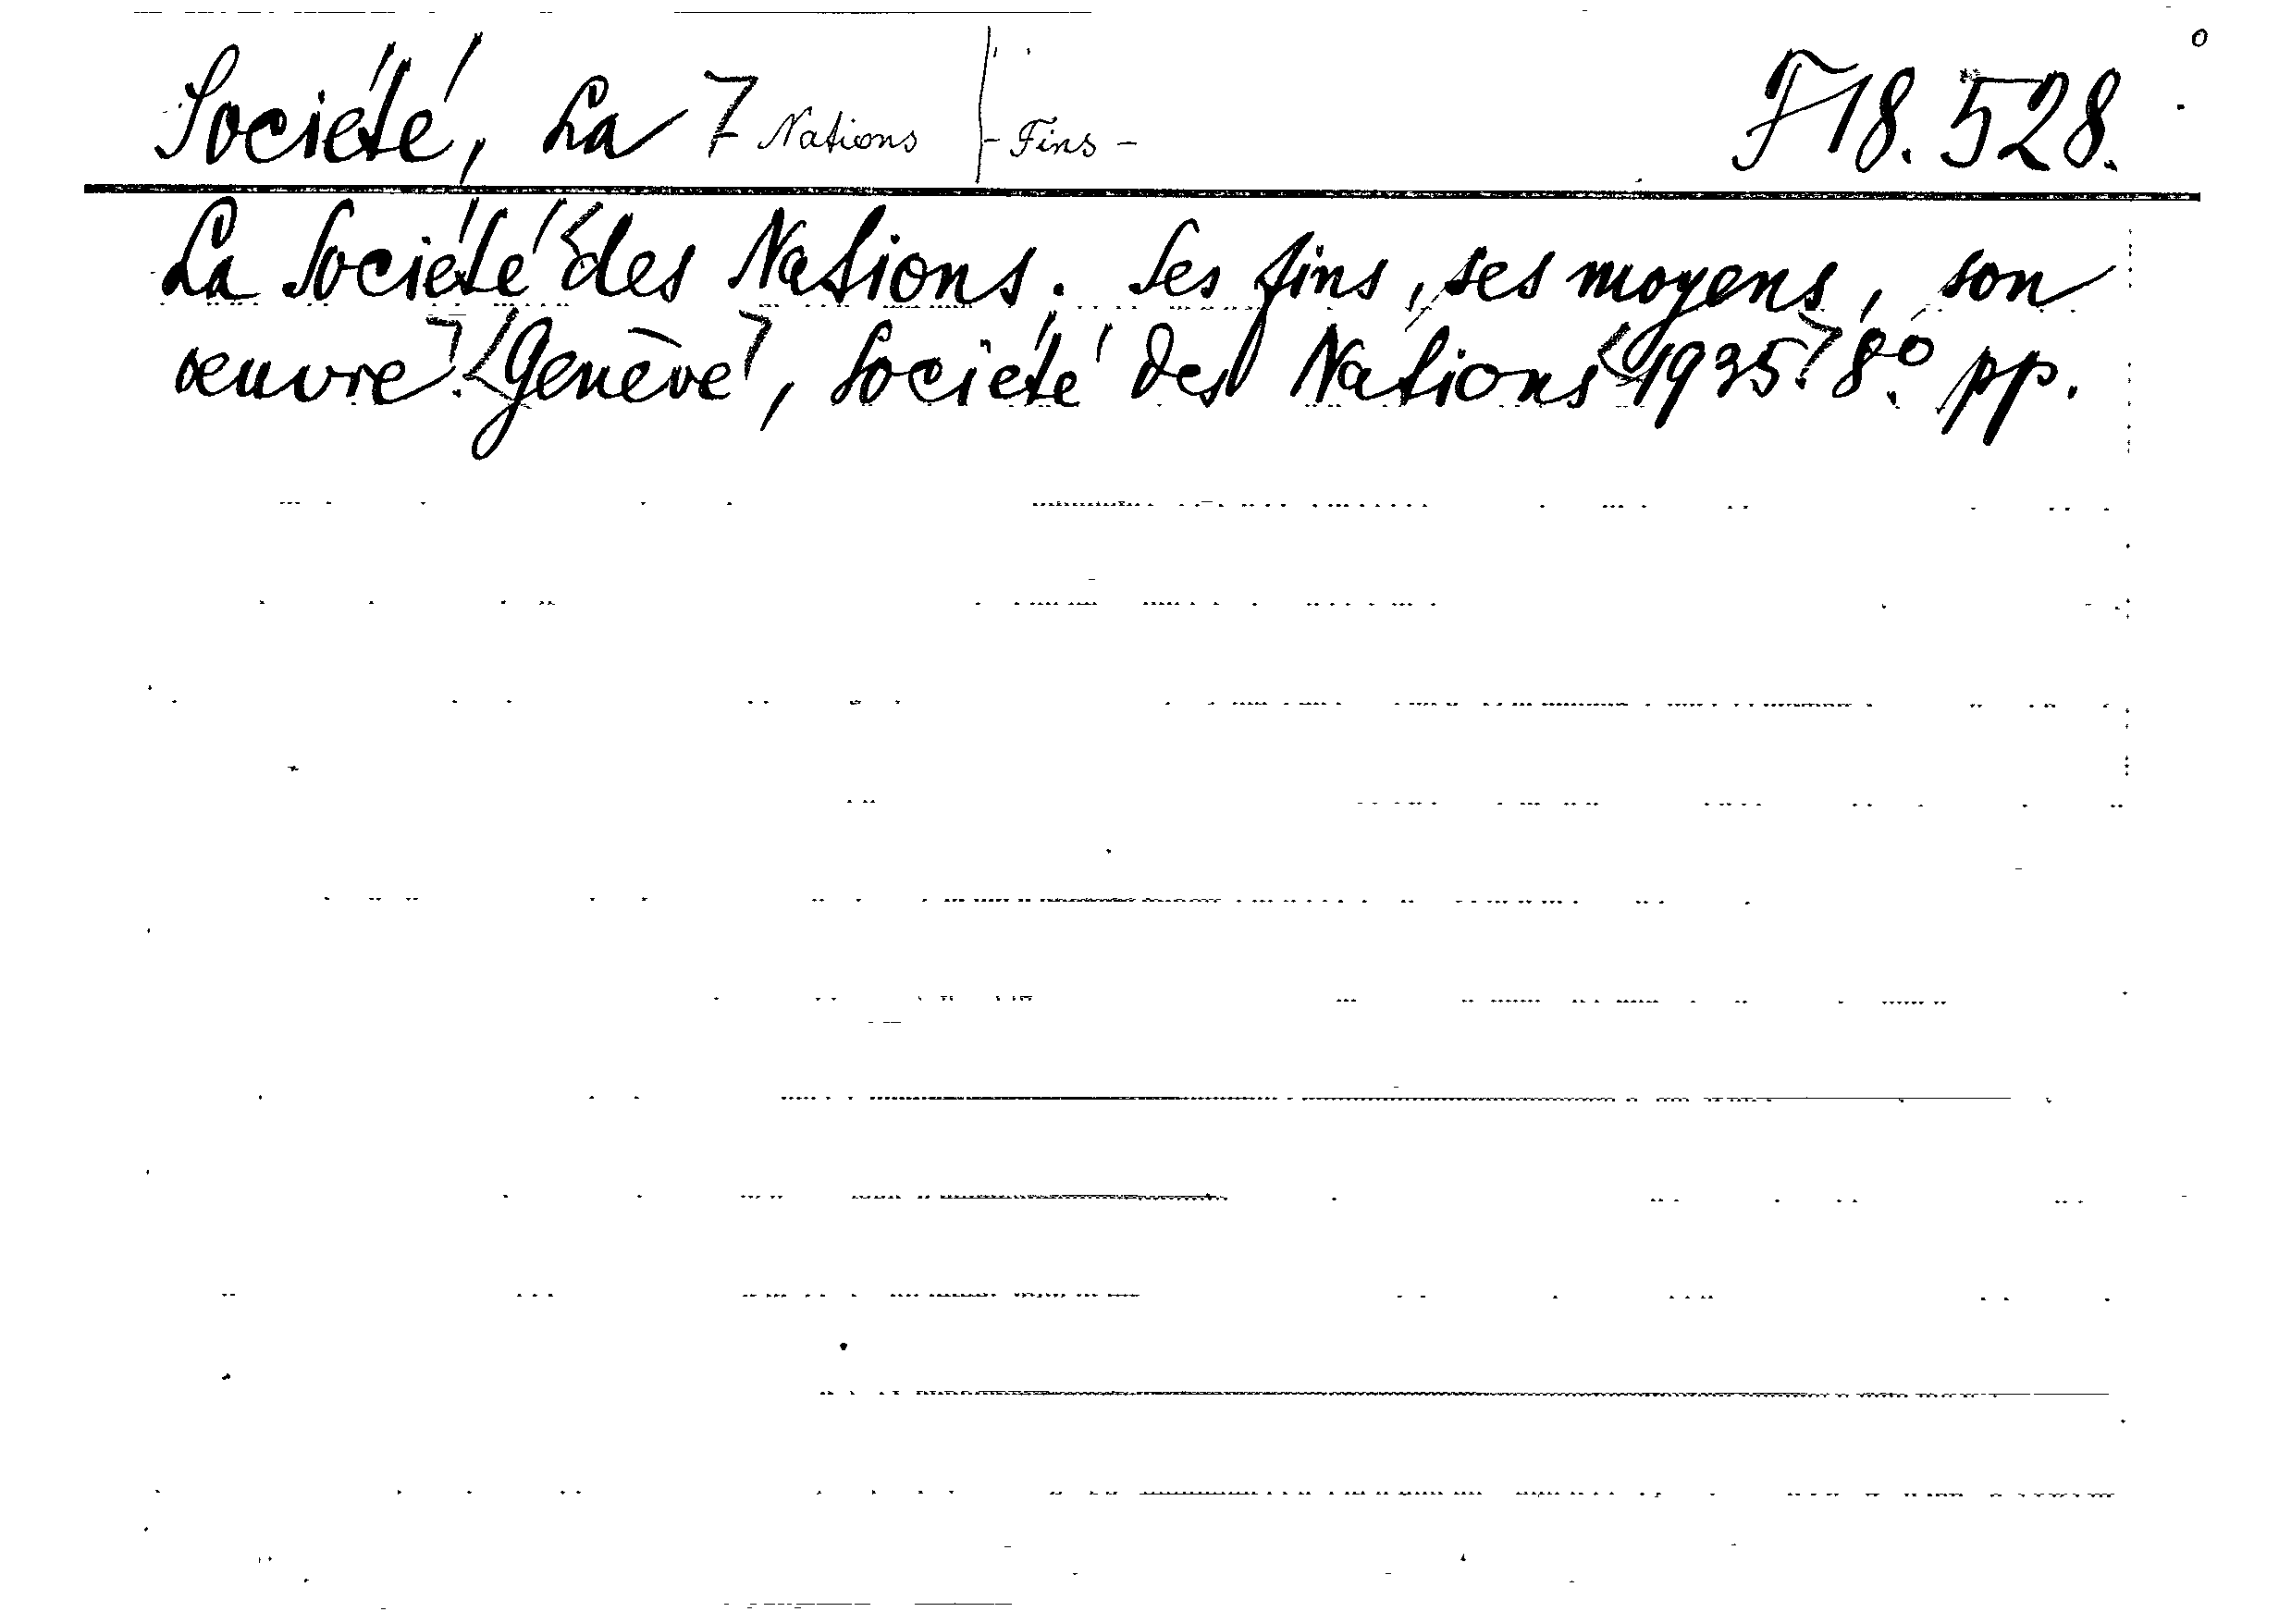 Société, La 7 Nations - Fins - F18.528.
La Société <des Nations. Ses fins, ses moyens, son
œuvre>. <Genève>, Société des Nations <1935> 8.º pp.